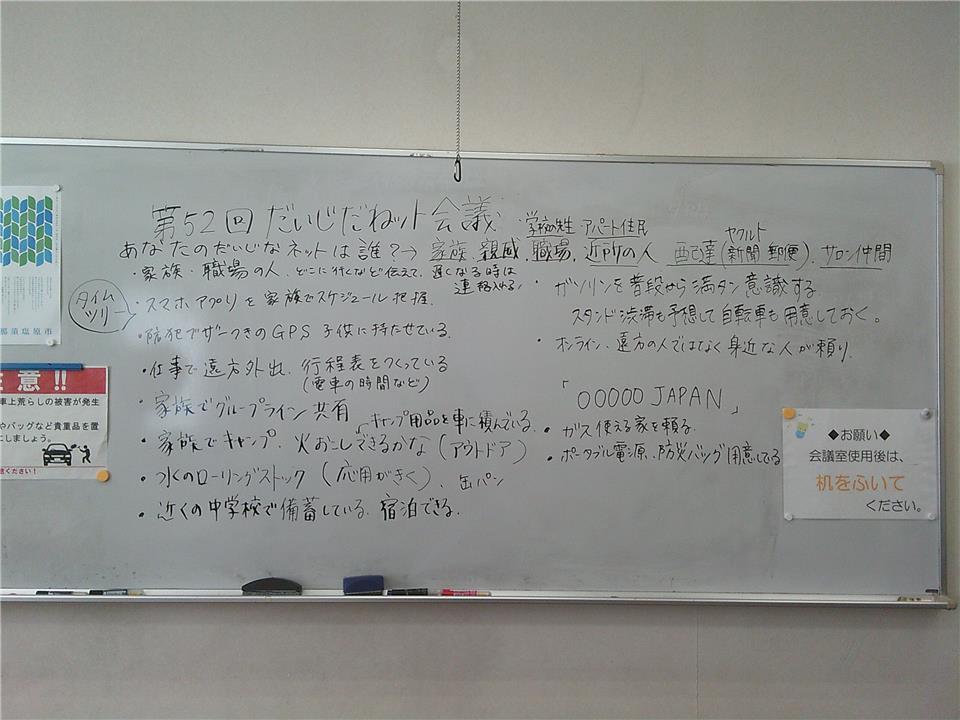 第52回 だいじだねット会議
・学校の先生 アパート住民
ヤクルト
あなたのだいじなネットは誰?→ 家族、親戚、職場、近所の人 配達(新聞 郵便)、サロン仲間
・家族・職場の人、どこに行くなど伝えて、遅くなる時は
連絡入れる
タイム
ツリー
・スマホアプリを家族でスケジュール把握、
・防犯ブザーつきのGPS 子供に持たせている、
・仕事で遠方外出、行程表をつくっている
(電車の時間など)
・家族でグループライン共有
キャンプ用品を車に積んでいる、
・家族でキャンプ、火おこしできるかな(アウトドア)
・水のローリングストック(応用がきく)、缶パン
・近くの中学校で備蓄している、宿泊できる、
・ガソリンを普段から満タン意識する
スタンド渋滞も予想して自転車も用意しておく。
・オンライン、遠方の人ではなく身近な人が頼り、
「00000 JAPAN」
・ガス使える家を頼る、
・ポータブル電源、防災バッグ用意してる
那須塩原市
注意!!
車上荒らしの被害が発生
やバッグなど貴重品を置
にしましょう。
ください!
◆お願い◆
会議室使用後は、
机をふいて
ください。